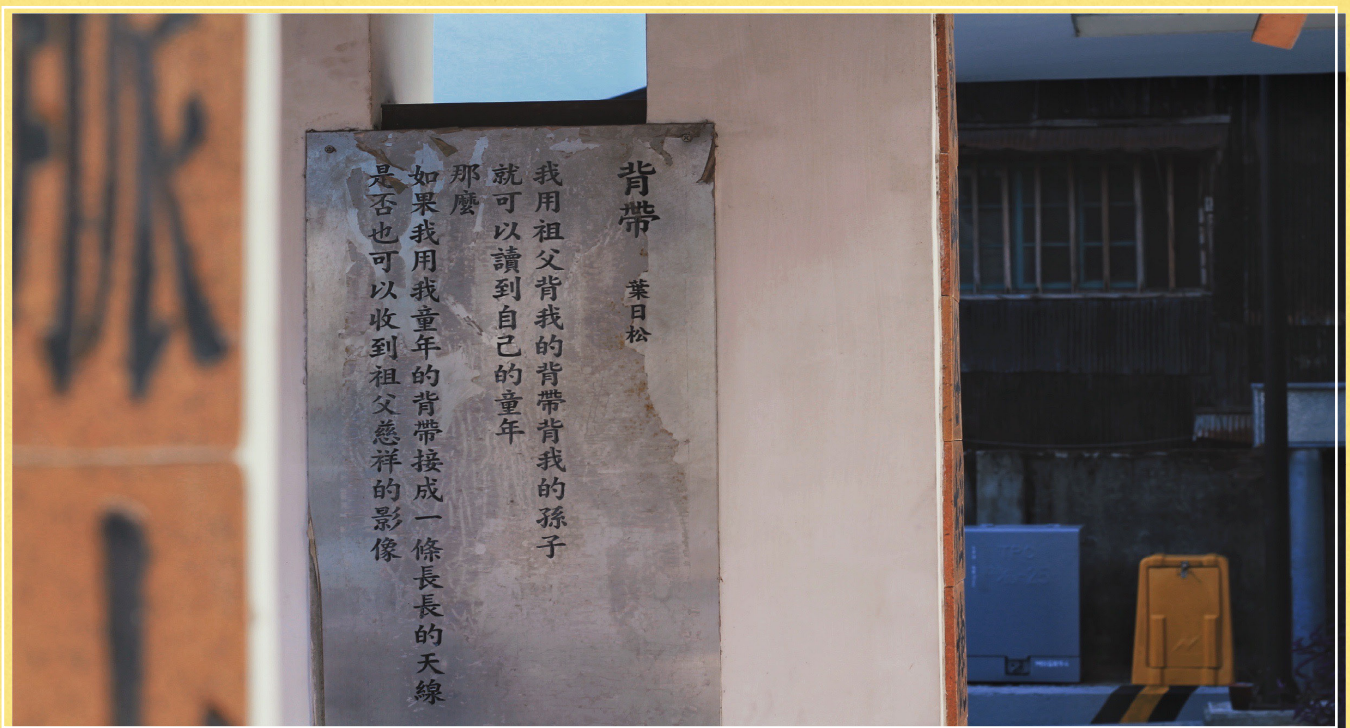 背帶 葉日松
我用祖父背我的背帶背我的孫子
就可以讀到自己的童年
那麼
如果我用我童年的背帶接成一條長長的天線
是否也可以收到祖父慈祥的影像